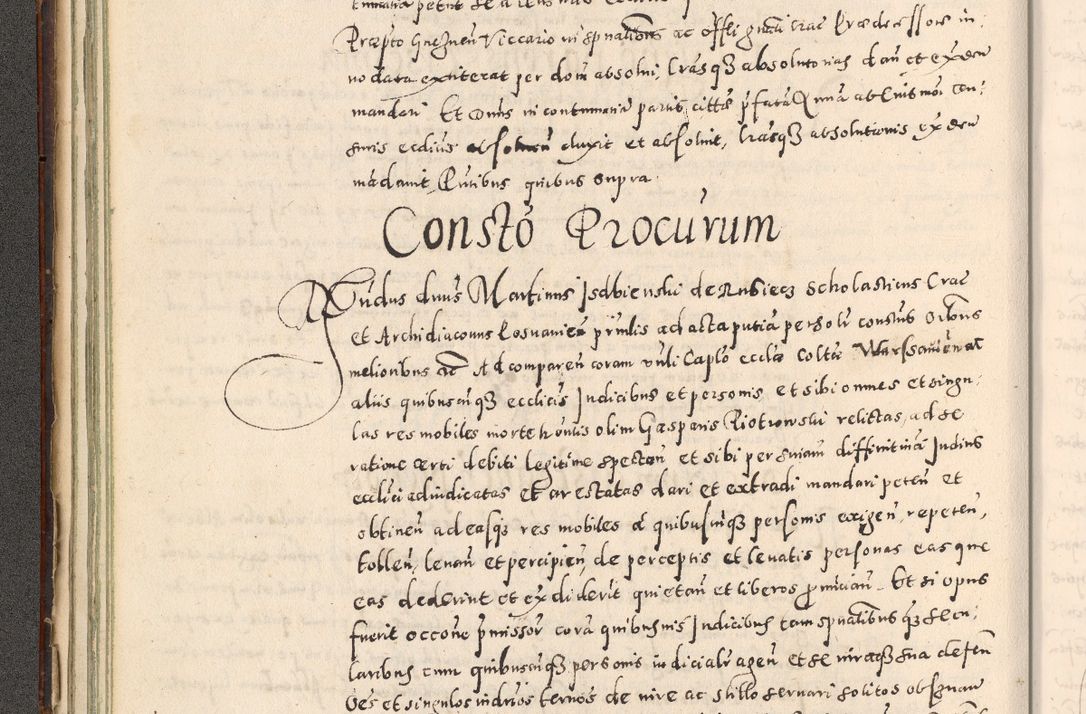 Praepto Gneznen Viccario in spualibus ac offli gnali Crac Praedecessore in
nodata extiterat per dom absolui, lrasq3 absolutorias dari et exden
mandari Et Dnus in contumacia partis citate pfata Q ma ab huiusmoi cen:
suris ecclius absoluen duxit et absoluit, lrasq3 absolutionis ex den
mādauit, Pntibus quibus supra.
Constō Procurum
Rndus dnus Martinus Isdbienski de Rusiecz Scholasticus Crac
et Archidiaconus Posnanien prnlis ad acta putia persolr constus Oibus
melioribus ac Ad comparen coram vnli Caplo ecclae colltae Warssauien ac
aliis quibuscuq3 ecclicis Judicibus et personis, et sibi omnes et singu:
las res mobiles morte honlis olim Gasparis Piotrowski relictas, ad se
ratione certi debiti legitime specten et sibi per sniam diffinitiua Judius
ecclici adiudicatas et arestatas dari et extradi mandari peten et
obtinen ad easq3 res mobiles a quibusuisq3 personis exigen, repeten,
tollen, leuan et percipien, de perceptis et leuatis personas easque
eas dederint et exdiderit quietan et liberos pnuncian. Et si opus
fuerit occone pmissor cora quibusuis Judicibus tam spualibus q3 secu:
laribus cum quibuscuq3 personis iudicialr agen et se iuraq3 sua defen
Oes et singulos iudrios ternos de iure ac stillo seruari solitos obseruan